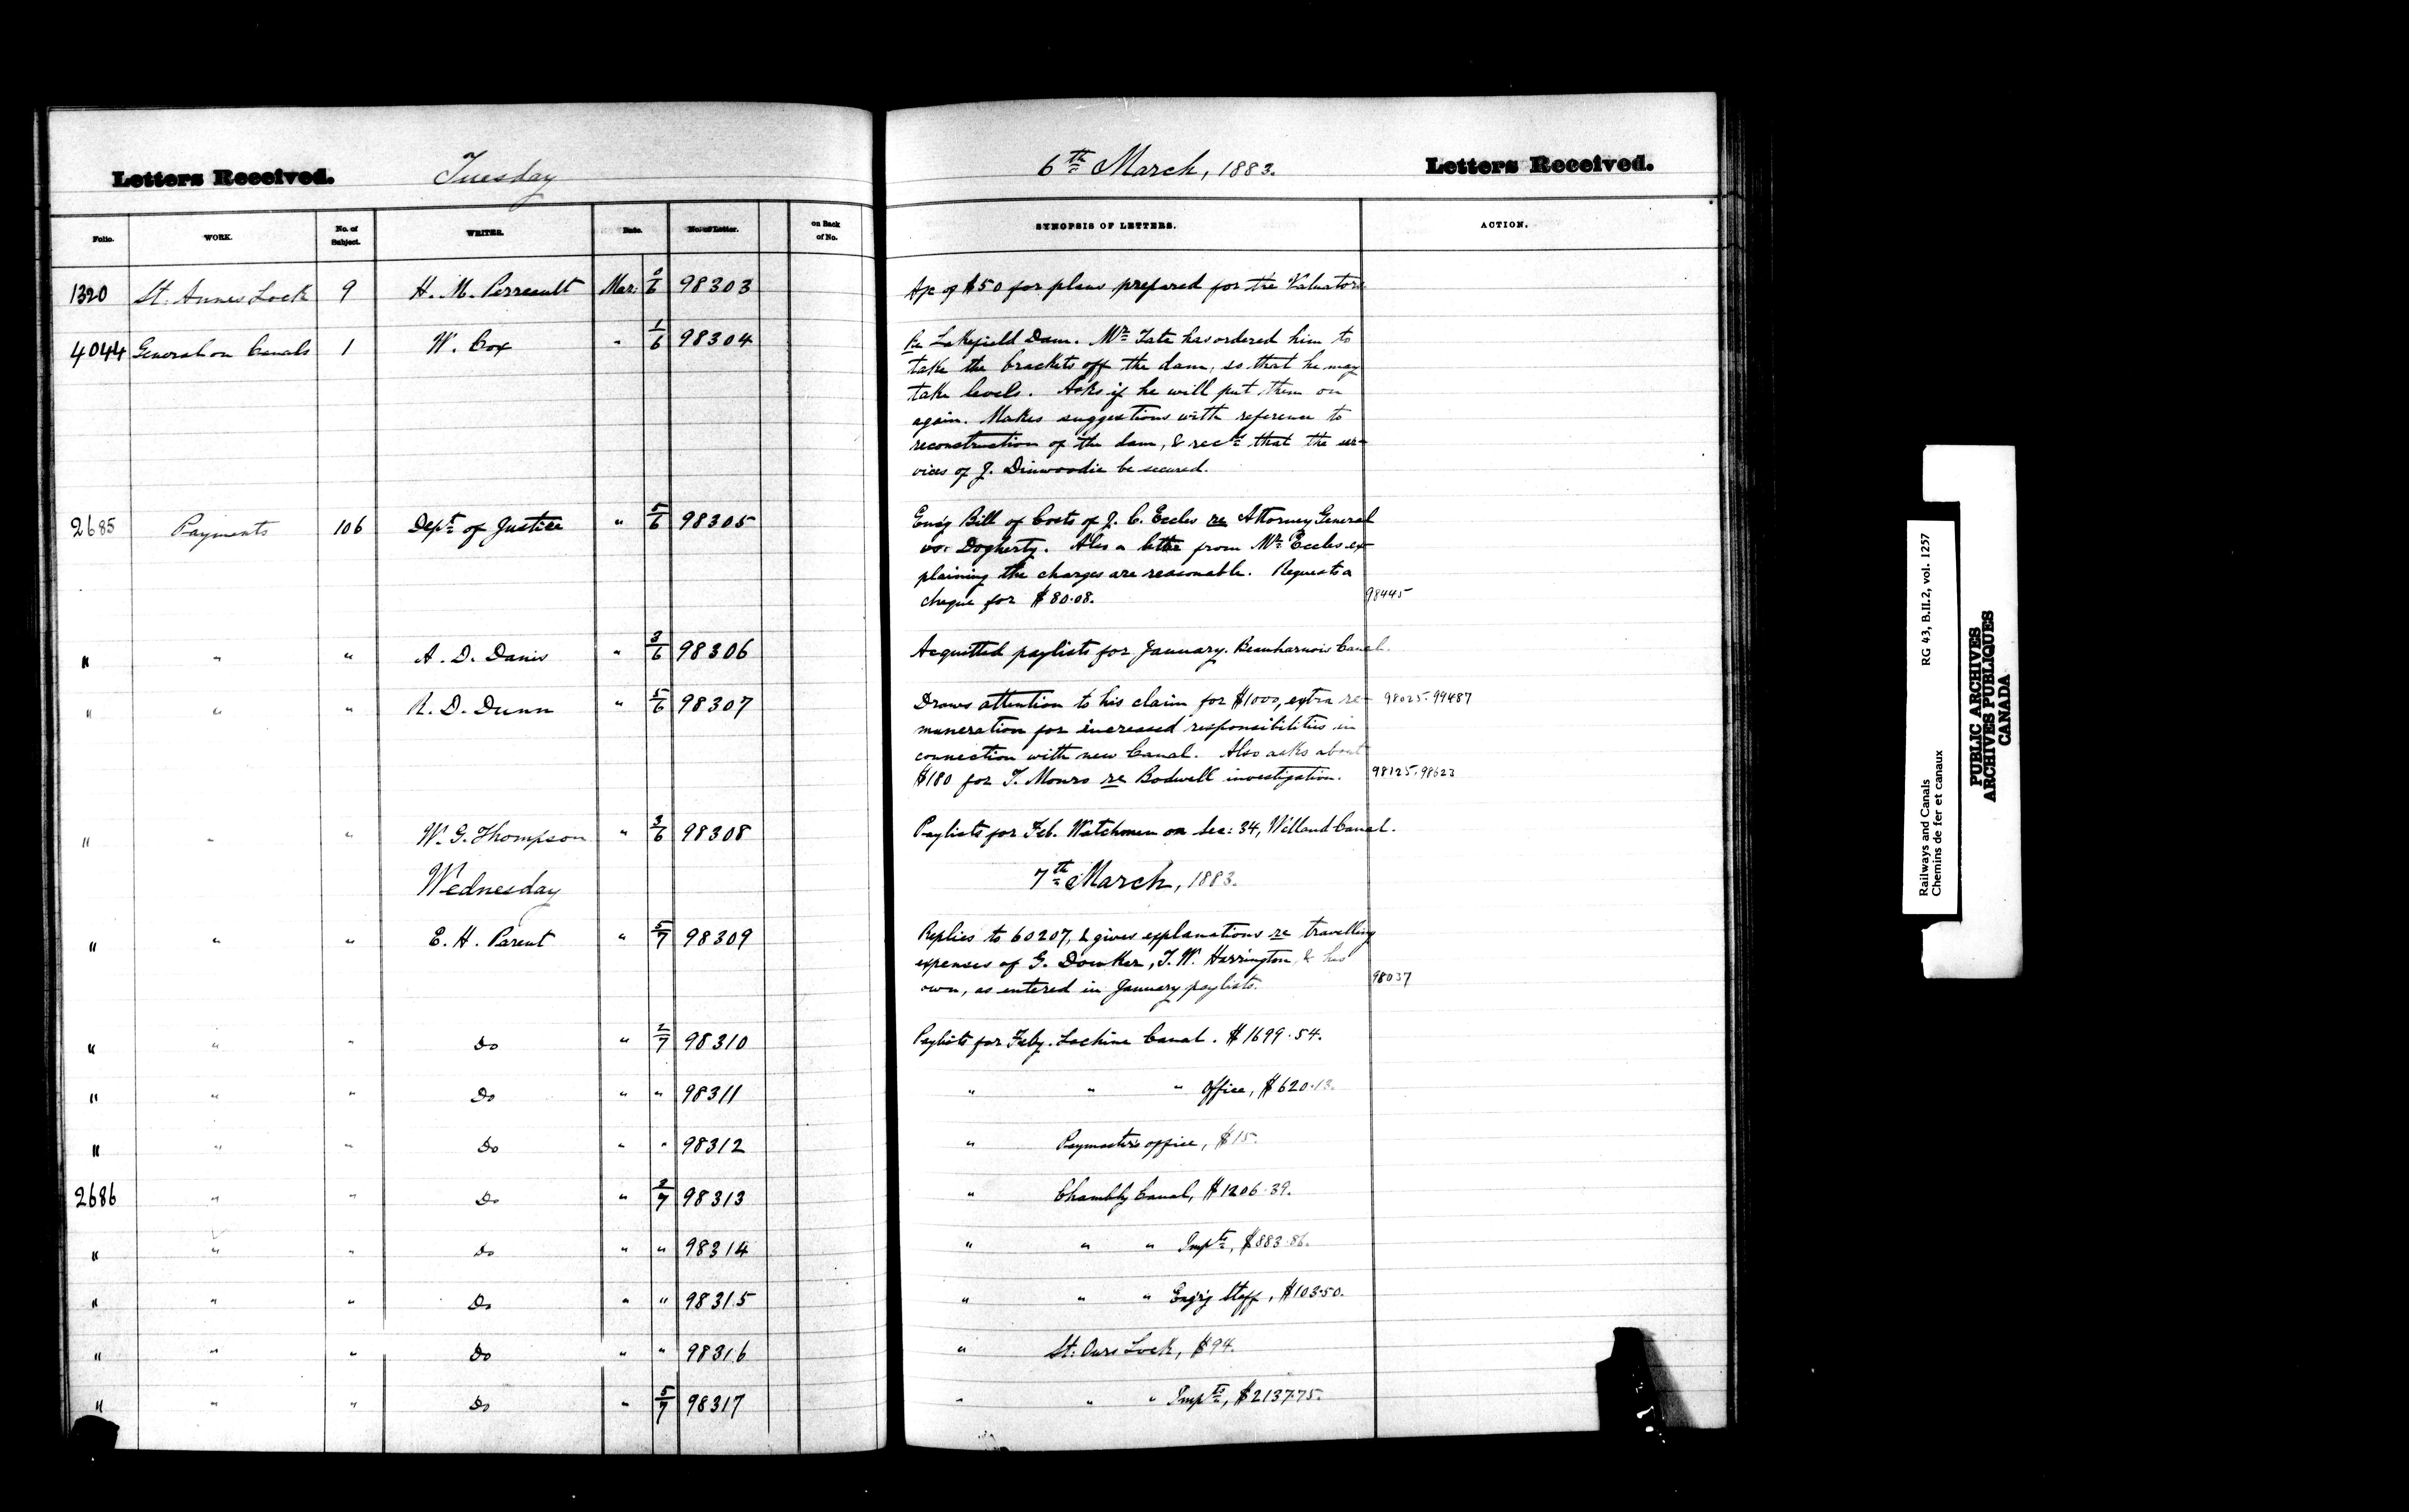 Letters Received. Tuesday 6th March, 1883. Letters Received.
Folio. WORK. No. of Subject. WRITER. Date. No. of Letter. on Back of No. SYNOPSIS OF LETTERS. ACTION.
1320 St. Annes Lock 9 H. M. Perreault Mar: /6 98303 of $50 for plans prepared for the Valuators
4044 General on Canals 1 W. Cox " 1/6 98304 Re Lakefield Dam. Mr Tate has ordered him to
take the brackets off the dam, so that he may
take levels. Asks if he will put them on
again. Makes suggestions with reference to
reconstruction of the dam, & recds that the ser-
vices of J. Dinwoodie be secured.
2685 Payments 106 Dept of Justice " 5/6 98305 Encg Bill of Costs of J. C. Eccles re Attorney General
vs. Dogherty. Also a letter from Mr Eccles ex-
plaining the charges are reasonable. Requests a
cheque for $80.08. 98445
" " " A. D. Danis " 3/6 98306 Acquitted paylists for January. Beauharnois Canal.
" " " R. D. Dunn " 5/6 98307 Draws attention to his claim for $1000, extra re- 98025. 99487
muneration for increased responsibilities in
connection with new Canal. Also asks about
$180 for T. Monro re Bodwell investigation. 98125. 98623
" " " W. G. Thompson " 3/6 98308 Paylists for Feb. Watchmen on Sec: 34, Welland Canal.
Wednesday 7th March, 1883.
" " " E. H. Parent " 5/7 98309 Replies to 60207, & gives explanations re travelling
expenses of G. Dowker, T. W. Harrington, & his
own, as entered in January paylists. 98037
" " " Do " 2/7 98310 Paylists for Feby. Lachine Canal. $1699.54.
" " " Do " " 98311 " " " Office, $620.13.
" " " Do " " 98312 " Paymaster's office, $15.
2686 " " Do " 2/7 98313 " Chambly Canal, $1206.39.
" " " Do " " 98314 " " " Impts, $883.86.
" " " Do " " 98315 " " " Eng'g Staff, $103.50.
" " " Do " " 98316 " St. Ours Lock, $94.
" " " Do " 5/7 98317 " " " Impts, $2137.75.
Railways and Canals RG 43, B.II.2, vol. 1257
Chemins de fer et canaux
PUBLIC ARCHIVES
ARCHIVES PUBLIQUES
CANADA